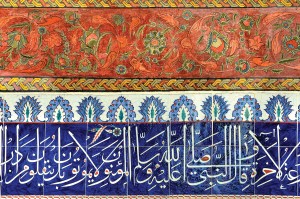 الاخرة قال النبي صلى الله عليه وسلم المؤمنون لا يموتون بل ينقلون من دار